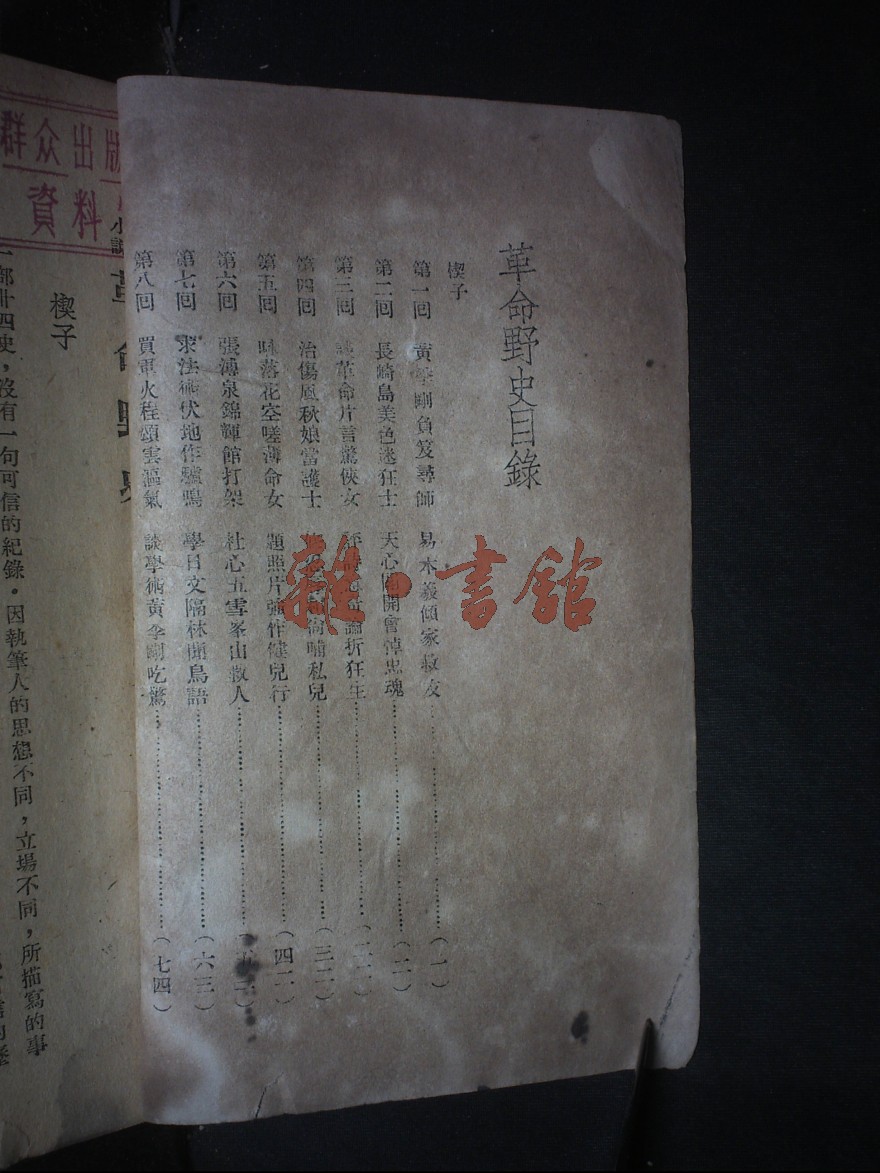 革命野史目錄
楔子
第一回 黃季剛負笈尋師 易本羲傾家救友 (一)
第二回 長崎島美色迷狂士 天心閣開會悼忠魂
第三回 談革命片言驚俠女 論折狂生
第四回 治傷風秋娘當護士 和尚哺私兒 (三二)
第五回 咏落花空嗟薄命女 題照片強作健兒行 (四二)
第六回 張溥泉錦輝館打架 杜心五雪峯山救人
第七回 求法術伏地作驢鳴 學日文隔林聞鳥語 (六三)
第八回 買軍火程頌雲漚氣 談學術黃季剛吃驚 (七四)
雜·書館
群众出版
資料
小說
楔子
一部廿四史，沒有一句可信的紀錄。因執筆人的思想不同，立場不同，所描寫的事